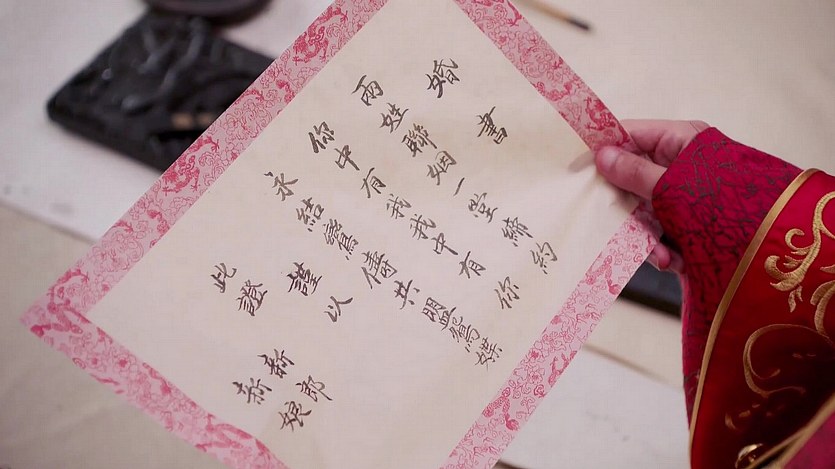 婚書
兩姓聯姻一堂締約
你中有我我中有你
永結鸞儔共盟鴛蝶
謹以
此證
新郎
新娘